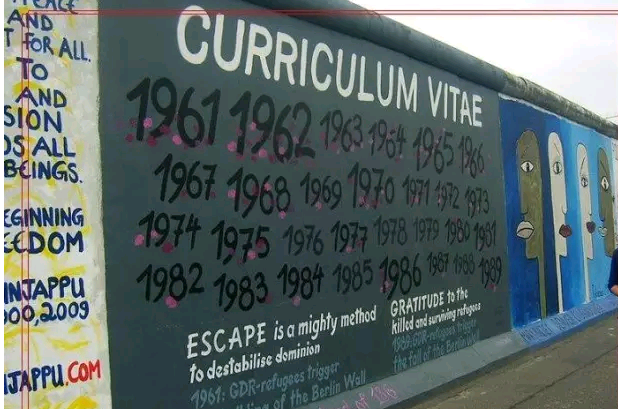 PEACE
AND
T FOR ALL.
TO
AND
SION
DS ALL
BEINGS.
EGINNING
EEDOM
NJAPPU
000,2009
NJAPPU.COM
CURRICULUM VITAE
1961 1962 1963 1964 1965 1966
1967 1968 1969 1970 1971 1972 1973
1974 1975 1976 1977 1978 1979 1980 1981
1982 1983 1984 1985 1986 1987 1988 1989
ESCAPE is a mighty method
to destabilise dominion
1961: GDR-refugees trigger
of the Berlin Wall
GRATITUDE to the
killed and surviving refugees
1989: GDR-refugees trigger
the fall of the Berlin Wall